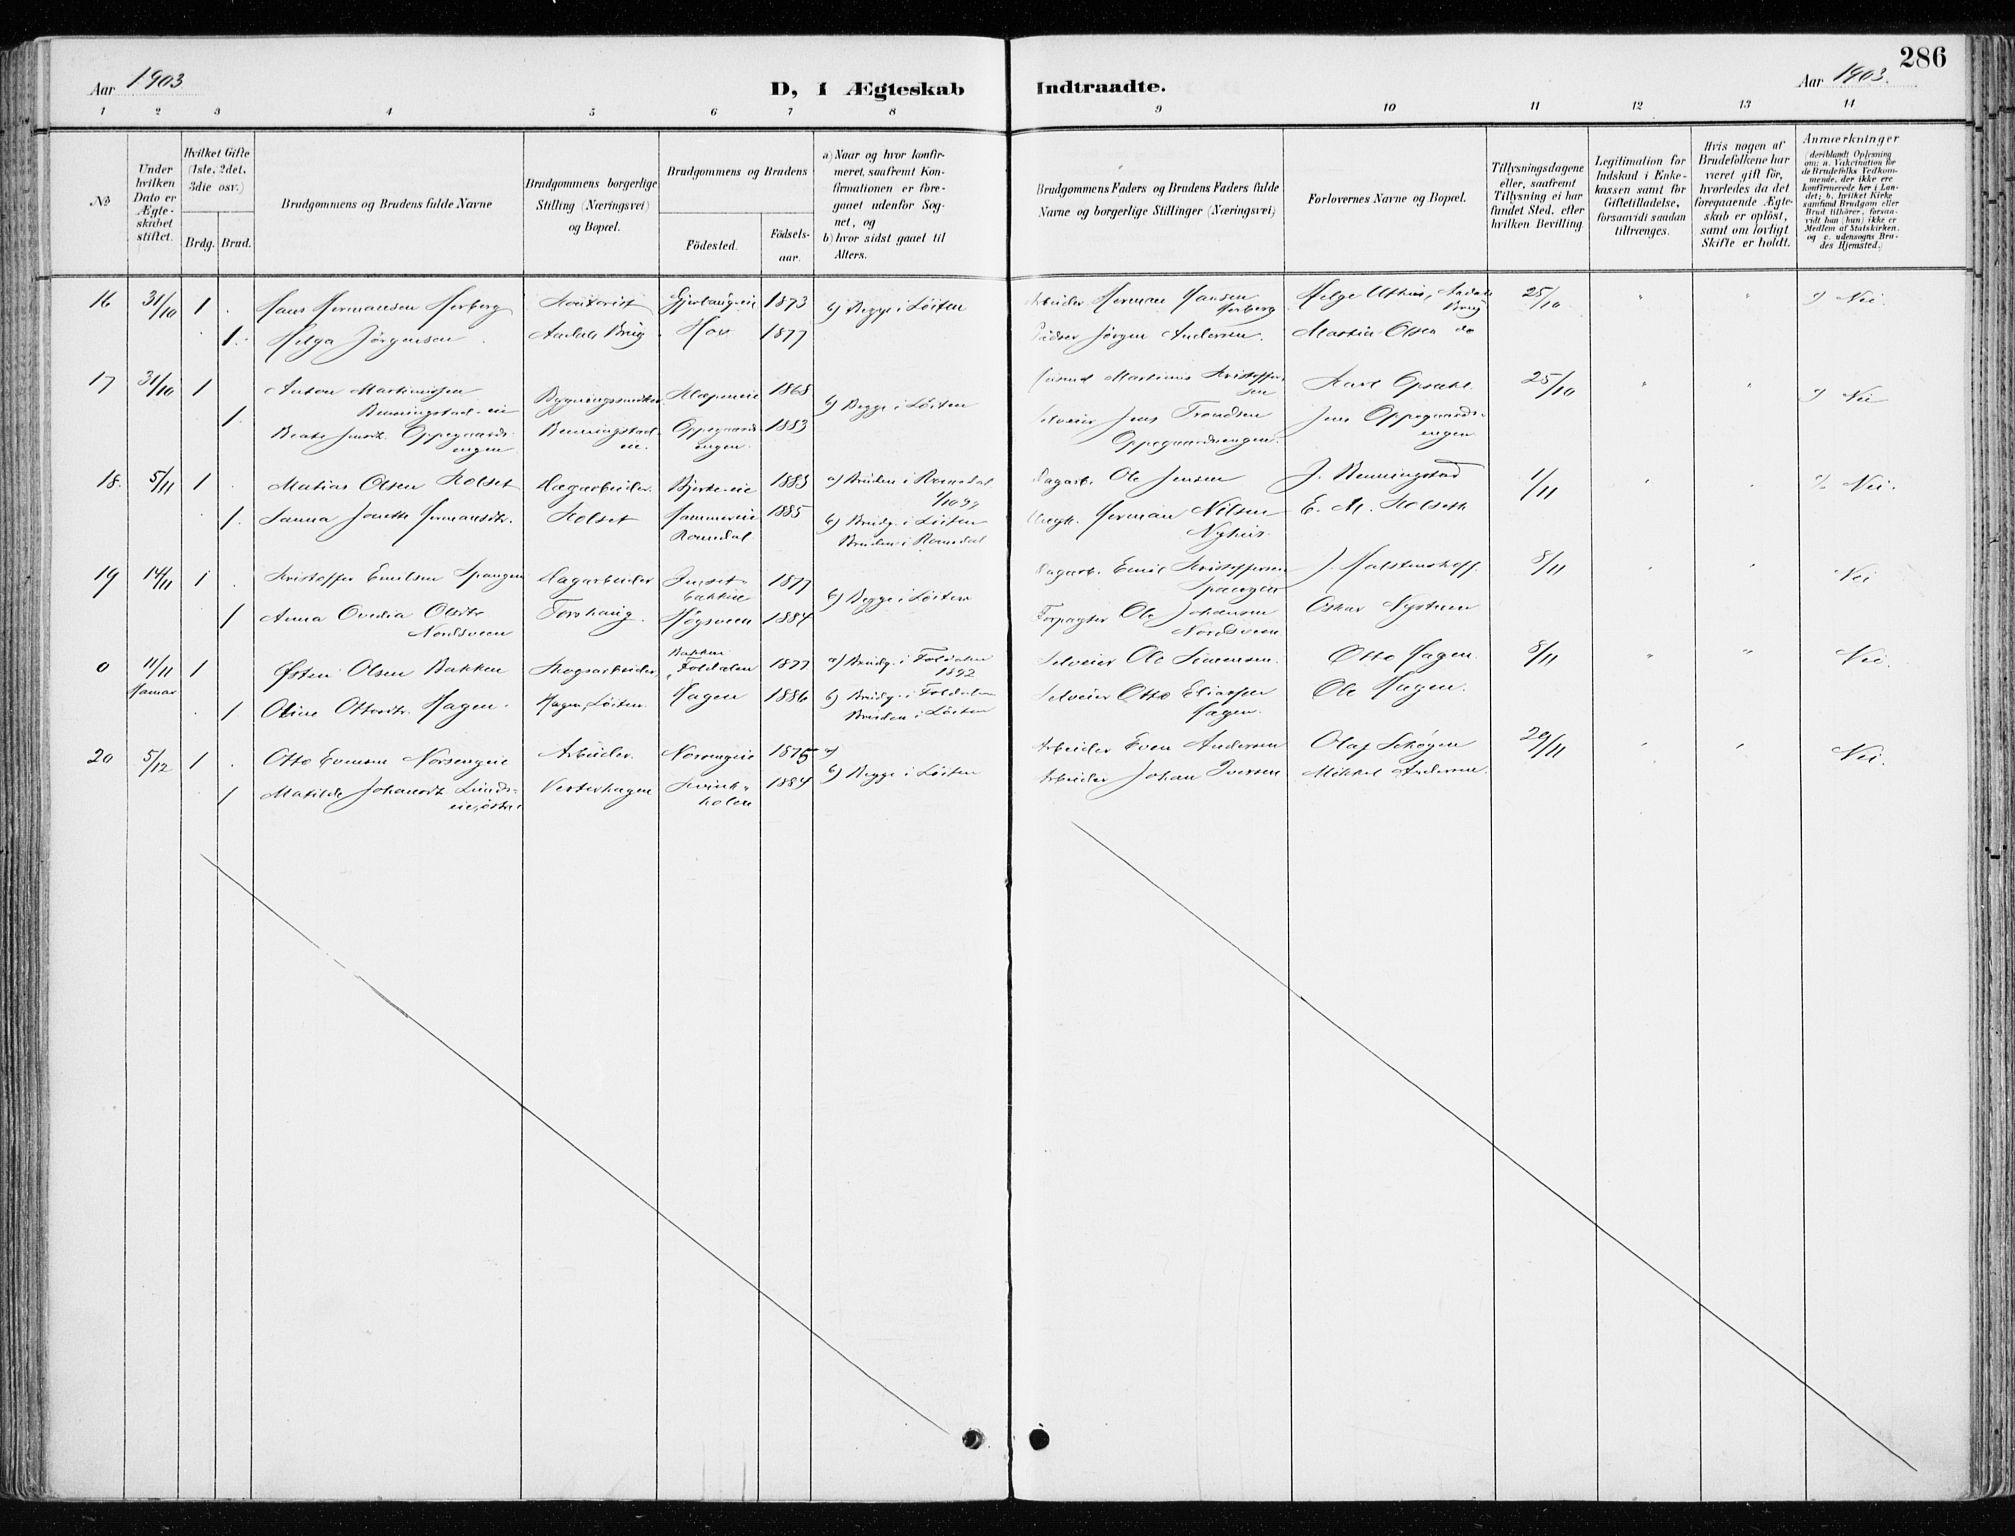 286
Aar 1903
D, i Ægteskab
Indtraadte.
Aar 1903.
1 2 3 4 5 6 7 8 9 10 11 12 13 14
№
Under hvilken Dato er Ægteskabet stiftet.
Hvilket Gifte (1ste, 2det, 3die osv.)
Brdg. Brud.
Brudgommens og Brudens fulde Navne
Brudgommens borgerlige Stilling (Næringsvei) og Bopæl.
Brudgommens og Brudens
Födested.
Födselsaar.
a) Naar og hvor konfirmeret, saafremt Konfirmationen er foregaaet udenfor Sognet, og
b) hvor sidst gaaet til Alters.
Brudgommens Faders og Brudens Faders fulde Navne og borgerlige Stillinger (Næringsvei)
Forlovernes Navne og Bopæl.
Tillysningsdagene eller, saafremt Tillysning ei har fundet Sted, efter hvilken Bevilling.
Legitimation for Indskud i Enkekassen samt for Giftetilladelse, forsaavidt saadan tiltrænges.
Hvis nogen af Brudefolkene har været gift för, hvorledes da det foregaaende Ægteskab er oplöst, samt om lovligt Skifte er holdt.
Anmærkninger
(deriblandt Oplysning om: a. Vakcination for de Brudefolks Vedkommende, der ikke ere konfirmerede her i Landet; b. hvilket Kirkesamfund Brudgom eller Brud tilhörer, forsaavidt han (hun) ikke er Medlem af Statskirken, og c. udensogns Brudes Hjemsted.)
16 31/10 1 Hans Hermansen Herberg Kontorist 1873 b) Begge i Løiten Arbeider Herman Hansen Herberg Helge Uthus, Aadals Brug 25/10 " " Nei
1 Helga Jørgensen Aadals Brug Hov 1877 Jørgen Andersen. Martin Olsen do
17 31/10 1 Anton Martinussen Benningstad-eie Bygningssnedker Klæpeneie 1868 b) Begge i Løiten Martinus Kristoffersen Karl Opsahl. 25/10 " " Nei
1 Beate Jensdt. Oppegaardsengen Benningstadeie. Oppegaardsengen. 1883 Selveier Jens Trondsen Oppegaardsengen. Jens Oppegaardsengen
18. 5/11 1 Matias Olsen Kolset Dagarbeider. Bjerkeeie 1883 a) Bruden i Romedal 1/10 99 Dagarb. Ole Jensen J. Benningstad 1/11 " " Nei.
1. Sanna Jonette Hermansdt. Kolset Romedal 1885 b) Brudg. i Løiten Bruden i Romedal Herman Nilsen Nyhus. E. M. Kolseth
19 14/11 1 Kristoffer Emilsen Spangen Dagarbeider 1877 b) Begge i Løiten Dagarb. Emil Kristoffersen J. Halstenshoff. 8/11 " " Nei
1 Anna Ovedia Olsdtr Nordsveen Torshaug. Høgsveen 1884 Forpagter Ole Johansen Nordsveen Oskar Nystuen
0 11/11 Hamar 1 Østen Olsen Bakken Skogsarbeider Bakken Foldalen 1877 a) Brudg. i Foldalen 1892 Selveier Ole Simensen. Otto Hagen. 8/11 " " Nei.
1 Oline Ottosdtr. Hagen. Hagen, Løiten. Hagen 1886 b) Brudg. i Foldalen Bruden i Løiten Selveier Otto Eliassen Hagen. Ole Hagen.
20 5/12 1 Otto Evensen Norsengeie Arbeider. Norsengeie 1875 a) Arbeider Even Andersen Olaf Schøyen 29/11 " " Nei.
1 Matilde Johansdt Lundseie, østre Vesterhagen Kvinkholen 1884 b) Begge i Løiten Arbeider Johan Iversen Mikkel Andersen.